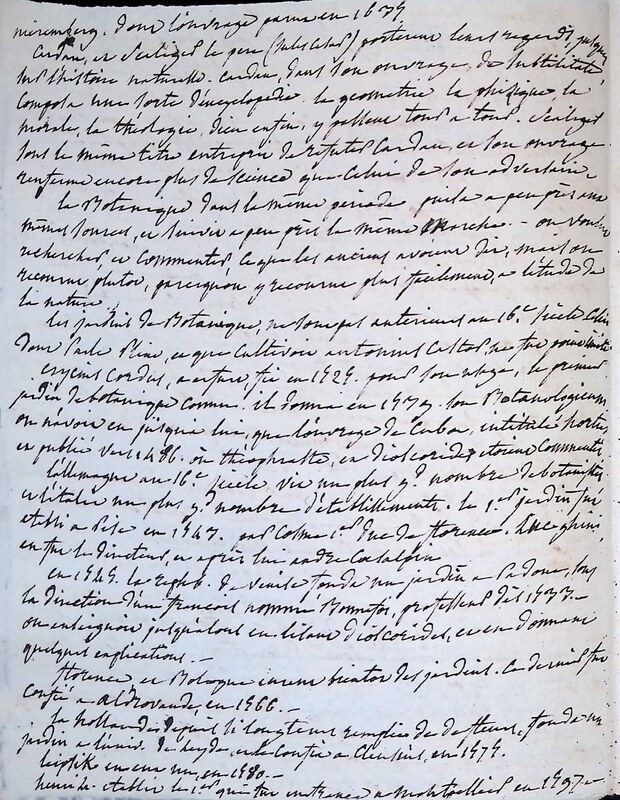 nieremberg. dont l'ouvrage parut en 1635,
Cardan, et Scaliger le pere (Jules Cesar) porterent leurs regards, jusques
sur l'histoire naturelle. Cardan, dans son ouvrage, de subtilitate,
composa une sorte d'encyclopedie. la geometrie la phisique la
morale, la théologie, Dieu enfin, y passent tour a tour. Scaliger
sous le même titre entreprit de refuter Cardan, et son ouvrage
renferme encore plus de science que celui de son adversaire,
la Botanique dans la meme periode puisa a peu près aux
mêmes sources, et suivit a peu près la même marche. - on voulut
rechercher et commenter ce que les anciens avoient dit, mais on
recourut plutot, parcequ'on y recourut plus facilement, a l'étude de
la nature
les jardins de Botanique, ne sont pas anterieurs au 16e siècle Celui
dont parle Pline, et que cultivoit antonius Castor, ne fut point imité
Cordus, a fit en 1525. pour son usage, le premier
jardin de botanique connu. il donna en 1535 son Botanologicum
on n'avoit eu jusqu'a lui, que l'ouvrage de Cuba, intitulé hortus,
et publié vers 1486. où théophraste, et dioscoride étoient commentés.
l'allemagne au 16e siècle vit un plus gd nombre de botanistes,
et l'italie un plus gd nombre d'établissements. le 1er jardin fut
etabli a Pise en 1543. par Cosme 1er duc de florence. Luc ghini
en fut le directeur, et après lui andre Cesalpin
en 1545. la repub. de Venise fonda un jardin a Padoue, sous
la direction d'un françois nommé Bonnafoi, professeur dès 1533 -
on enseignoit jusqu'alors en lisant dioscoride, et en donnant
quelques explications. -
florence et Bologne eurent bientot des jardins. Ce dernier fut
Confié a aldrovande, en 1566. -
la hollande, depuis si longtems remplie de fleurs, fonda un
jardin a l'univ. de leyde, et le confia a Clusius, en 1575.
leipsik en eut un, en 1580. -
henri 4. etablit le 1er qui fut en france a Montpellier en 1597. -